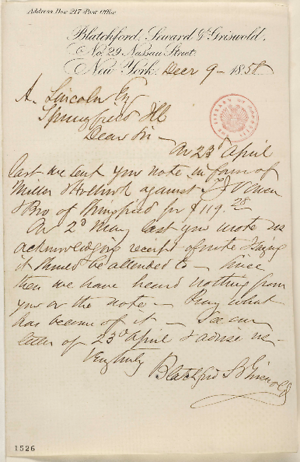 Address Box 217 Post Office
Blatchford, Seward & Griswold,
No. 29 Nassau Street.
New York. Decr 9 - 1858
A. Lincoln Esq
Springfield Ill
Dear Sir -
On 23d April
last we sent you note in favor of
Miller & against
& Bro of Springfield for $119.28
On 2d May last you wrote us
acknowledging receipt of note & saying
it should be attended to - Since
then we have heard nothing from
you or the note - Pray what
has become of it - See our
letter of 23d April & advise us -
Very truly
Blatchford S & Griswold
1526